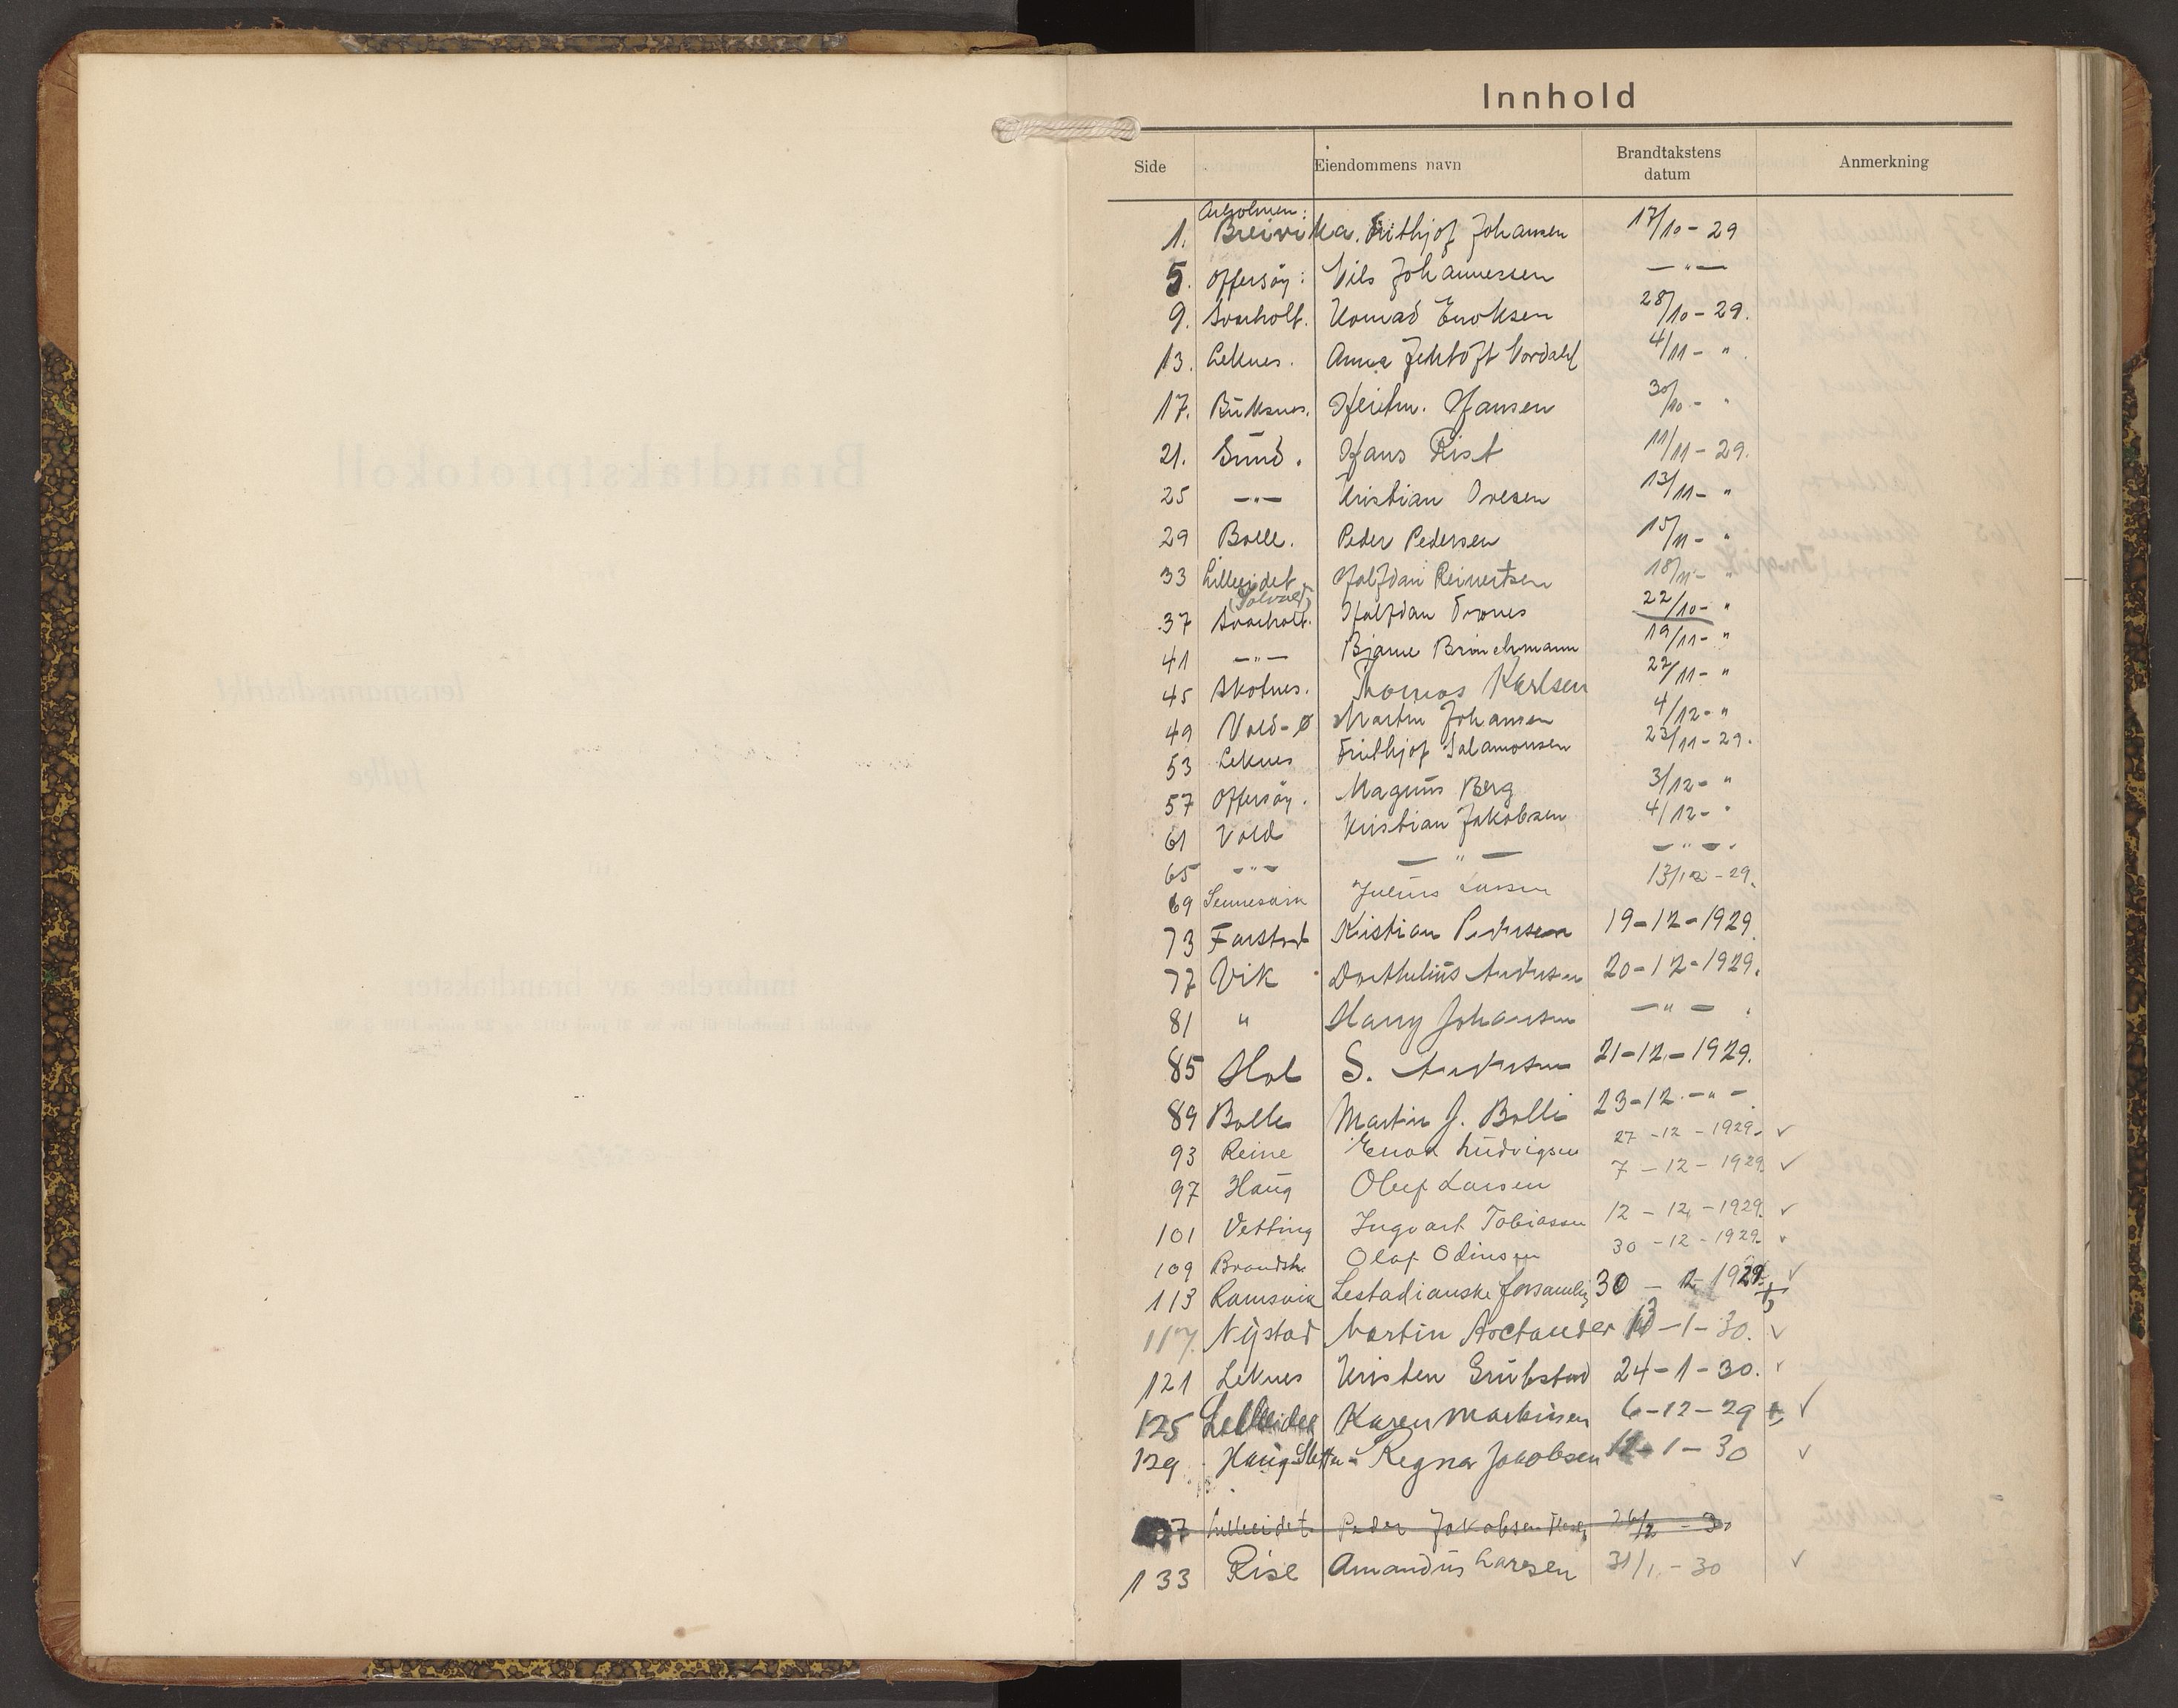 Innhold
Side Eiendommens navn Brandtakstens datum Anmerkning
1. Breivika. Frithjof Johansen 17/10-29
5. Offersöy: Nils Johannessen —"—
9. Storholt. Konrad Enoksen 28/10-29.
13. Leknes. Anna Jentoft Nordahl 4/11- "
17. Buksnes. Hansen 30/10- "
21. Sund. Hans Rist 11/11-29.
25 —"— Kristian Ovesen 13/11- "
29 Bolle. Peder Pedersen 15/11- "
33 Lilleeidet Halfdan Reinertsen 18/11- "
37 Storholt. Halfdan 22/10- "
41 —"— Bjarne Brinchmann 19/11- "
45 Skotnes. Thomas Karlsen 22/11- "
49 Vold-Ø Martin Johansen 4/12- "
53 Leknes Frithjof Salamonsen 23/11-29.
57 Offersöy. Magnus Berg 3/12- "
61 Vold Kristian Jakobsen 4/12- "
65 -"- — " — -"-
69 Sennesvik Julius Larsen 13/12-29.
73 Farstad Kristian Pedersen 19-12-1929.
77 Vik Dorthelius Andersen 20-12-1929.
81 " Harry Johansen —"—
85 Hol S. Andersen 21-12-1929.
89 Bolle Martin J. Bolle 23-12-"-
93 Reine Enok Ludvigsen 27-12-1929. ✓
97 Haug Oluf Larsen 7-12-1929 ✓
101 Vetting Ingvart Tobiassen 12-12-1929. ✓
109 Brandsh. Olaf Odinsen 30-12-1929. ✓
113 Ramsvik Lestadianske forsamling 30-12-1929 ✓
117. Nystad Martin Arctander 13-1-30. ✓
121 Leknes Kristen Grubstad 24-1-30. ✓
125 Lilleeidet Karen Martinsen 6-12-29 ✓
129 Haug-Sletten Regnar Jakobsen 12-1-30 ✓
Lilleeidet Peder Jakobsen 26/2-30
133 Rise Amandus Larsen 31/1-30 ✓